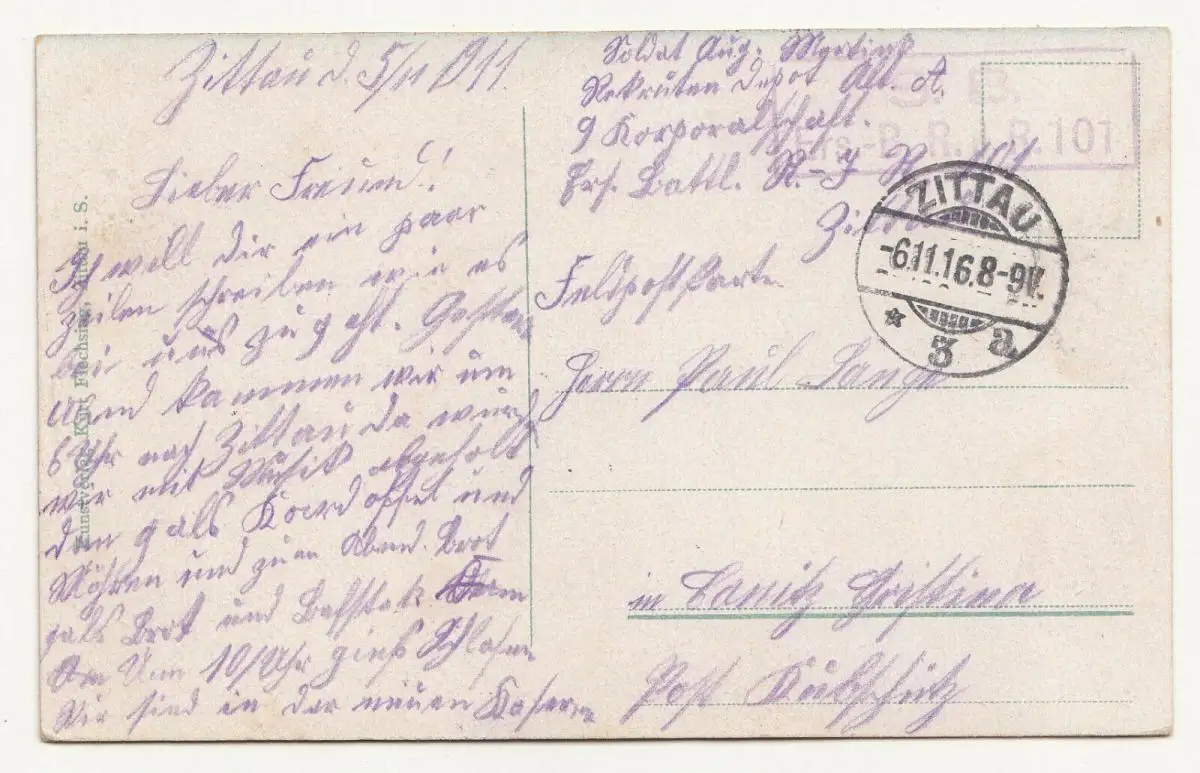 Zittau d 5/11 1911.
Lieber Freund!
Ich will dir ein paar
Zeilen schreiben wie es
bei uns zugeht. Gestern
Abend kammen wir um
6 Uhr nach Zittau da wurden
wir mit Musik abgeholt
dan gabs Kardoffel und
Möhren und zum Abend Brot
gabs Brot und
Um 10 Uhr giengs Schlafen
Wir sind in der neuen Kaserne
Kunstverlag Kurt Flechsig, Zittau i. S.
Soldat Aug.
Rekruten Depot Abt. A.
9 Korporalschaft.
Ers. Battl. R. J. R. 101
Zittau
S. B.
Ers.-B. R. J. R. 101
ZITTAU
-6.11.16.8-9V.
* 3 a
Feldpostkarte
Herrn Paul Lange
in
Post Kubschütz